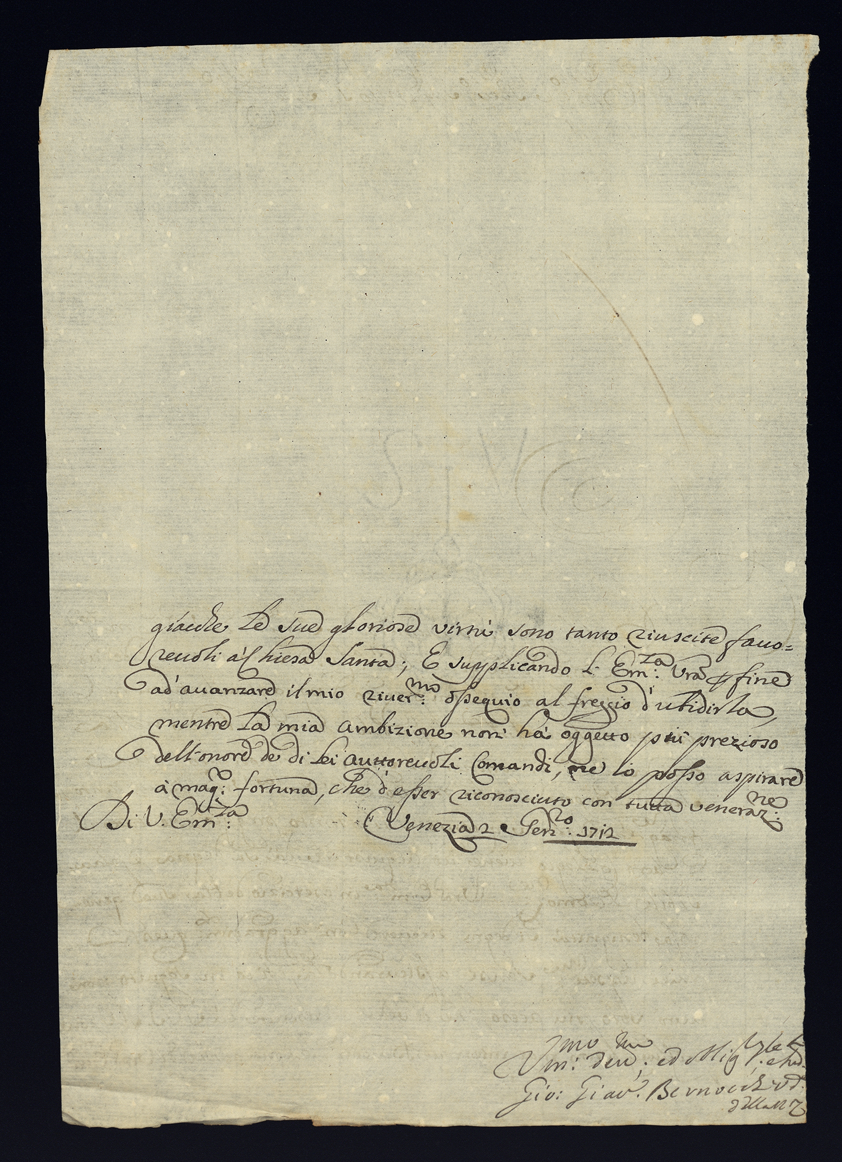 giacche le sue gloriose virtù sono tanto riuscite favo=
revoli à Chiesa Santa; E supplicando l'Em:za Vra p fine
ad'avanzare il mio river:mo ossequio al freggio d'ubidirla,
mentre la mia ambizione non ha oggetto più prezioso
dell'onore de di lei auttorevoli Comandi, ne io posso aspirare
à mag:r fortuna, che d'esser riconosciuto con tutta veneraz:ne
Di V. Em:za Venezia 2 Gen:ro 1712
Vm:mo ed
Gio: